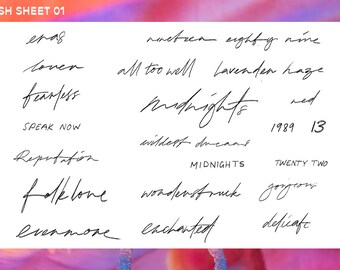 SH SHEET 01
eras
nineteen eighty nine
lover
all too well
lavender haze
fearless
Midnights
red
SPEAK NOW
1989
13
wildest dreams
Reputation
MIDNIGHTS
TWENTY TWO
folklore
wonderstruck
gorgeous
evermore
enchanted
delicate